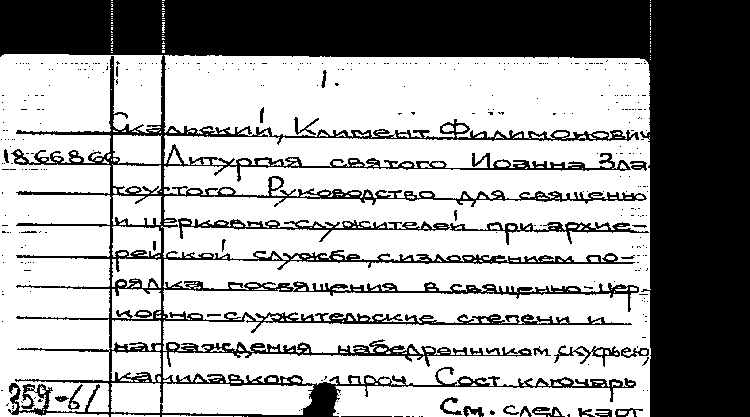 1.
Скальский, Климент Филимонович
1866866 Литургия святого Иоанна Зла-
тоустого Руководство для священно
и церковно-служителей при архие-
рейской службе, с изложением по-
рядка посвящения в священно-цер-
ковно-служительские степени и
награждения набедренником, скуфьею,
камилавкою и проч. Сост. ключарь
359-61 См. след. карт